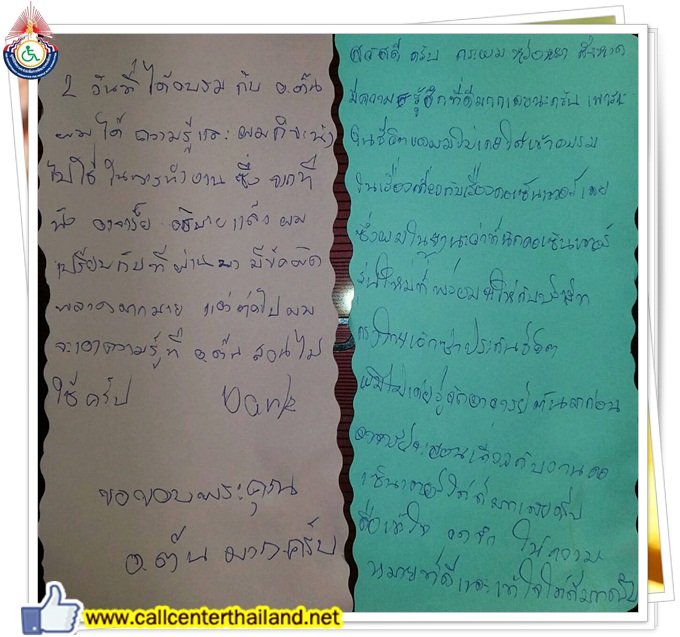 2 วันที่ได้อบรม กับ อ.ต้น
ผมได้ ความรู้และ ผมก็จะนำ
ไปใช้ ในการทำงาน ซึ่ง จากที่
ฟัง อาจารย์ อธิบายแล้ว ผม
เปรียบกับที่ ผ่านมา มีข้อผิด
พลาดมากมาย แต่ต่อไป ผม
จะเอาความรู้ ที่ อ.ต้น สอนไป
ใช้ครับ
ขอขอบพระคุณ
อ.ต้น มาก.ครับ
สวัสดี ครับ กระผม
มีความรู้สึกที่ดีมากเลยนะครับ เพราะ
ในชีวิตของผมไม่เคยได้เข้าอบรม
ในเรื่องเกี่ยวกับเรื่องคอเซ็นเตอร์เลย
ซึ่งผมในฐานะ
รุ่นใหม่ที่
กรุงไทยแอกซ่าประกันชีวิต
ผมไม่เคยรู้จักอาจารย์ต้นมาก่อน
อาจารย์จะสอนเกี่ยวกับงาน คอ
เซ็นเตอร์ได้ดีมากเลยครับ
คือเข้าใจ ในความ
หมายที่ดีและเข้าใจได้ดีมากครับ
www.callcenterthailand.net